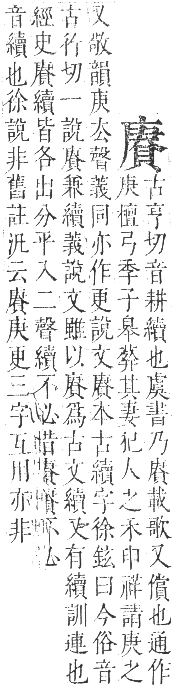 賡
古亨切音耕續也虞書乃賡載歌又償也通作
庚檀弓季子皋葬其妻犯人之禾申祥請庚之
又敬韻庚去聲義同亦作更說文賡本古續字徐鉉曰今俗音
古行切一說賡兼續義說文雖以賡爲古文續又有續訓連也
經史賡續皆各出分平入二聲續不必借賡賡不必
音續也徐說非舊註汎云賡庚更三字互用亦非